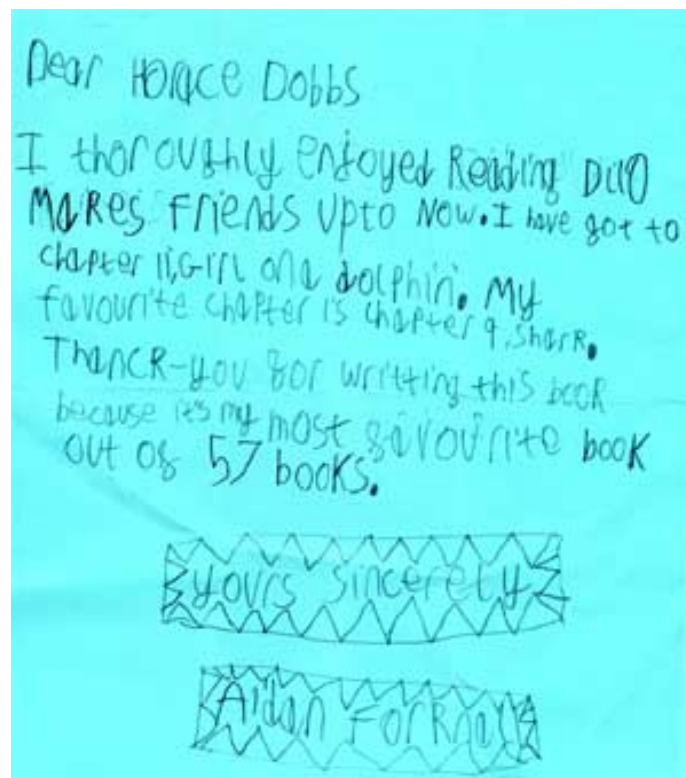 Dear Horace Dobbs
I thoroughly enjoyed Reading Dilo
Makes Friends Upto Now. I have got to
chapter 11, Girl on a dolphin. My
favourite chapter is chapter 9, Shark.
Thanck-you for writting this book
because it's my most favourite book
out of 57 books.
yours sincerely
Aidan